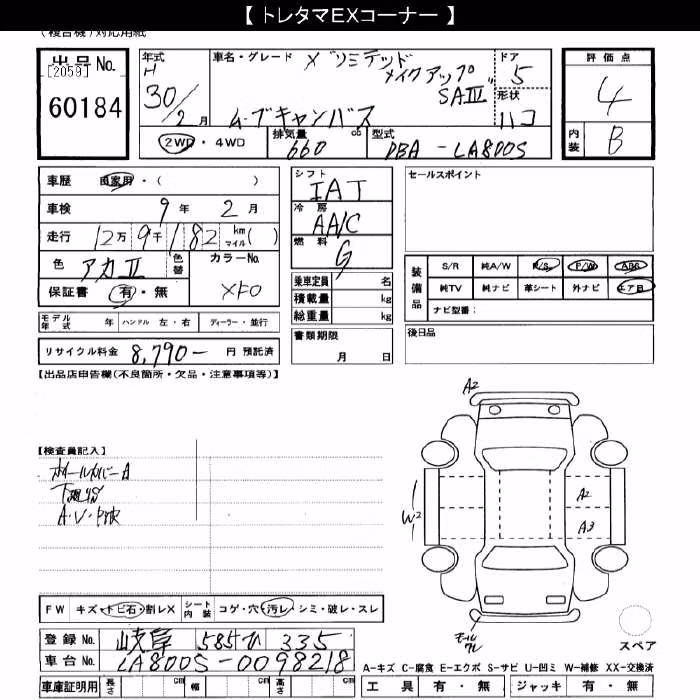 【 トレタマEXコーナー 】
(複合機)対応用紙
出品No.
[2059]
60184
年式
H
30/2月
車名・グレード
X リミテッド
メイクアップ
SAⅢ
ムーブキャンバス
ドア
5
形状
ハコ
2WD ・ 4WD
排気量
660 cc
型式
DBA - LA800S
評価点
4
内装
B
車歴 自家用・( )
車検 9年 2月
走行 12万 9千 182 km マイル( )
色 アカⅡ 色替
カラーNo.
保証書 有・無
XFO
モデル年式 年 ハンドル 左・右 ディーラー・並行
リサイクル料金 8,790- 円 預託済
シフト
IAT
冷房
AAC
燃料
G
乗車定員 名
積載量 kg
総重量 kg
書類期限
月 日
セールスポイント
装備品
S/R 純A/W P/S P/W ABS
純TV 純ナビ 革シート 外ナビ エアB
ナビ型番:
後日品
【出品店申告欄(不良箇所・欠品・注意事項等)】
【検査員記入】
ホイールカバーA
下廻りS
A・V・中波
A2
W2
A2
A3
モールワレ
スペア
FW キズ・トビ石・割レX シート内装 コゲ・穴・汚レ・シミ・破レ・スレ
登録No. 岐阜 585ひ 335
車台No. LA800S-0098218
車庫証明用 長さ cm 幅 cm 高さ cm
A-キズ C-腐食 E-エクボ S-サビ U-凹ミ W-補修 XX-交換済
工具 有・無 ジャッキ 有・無